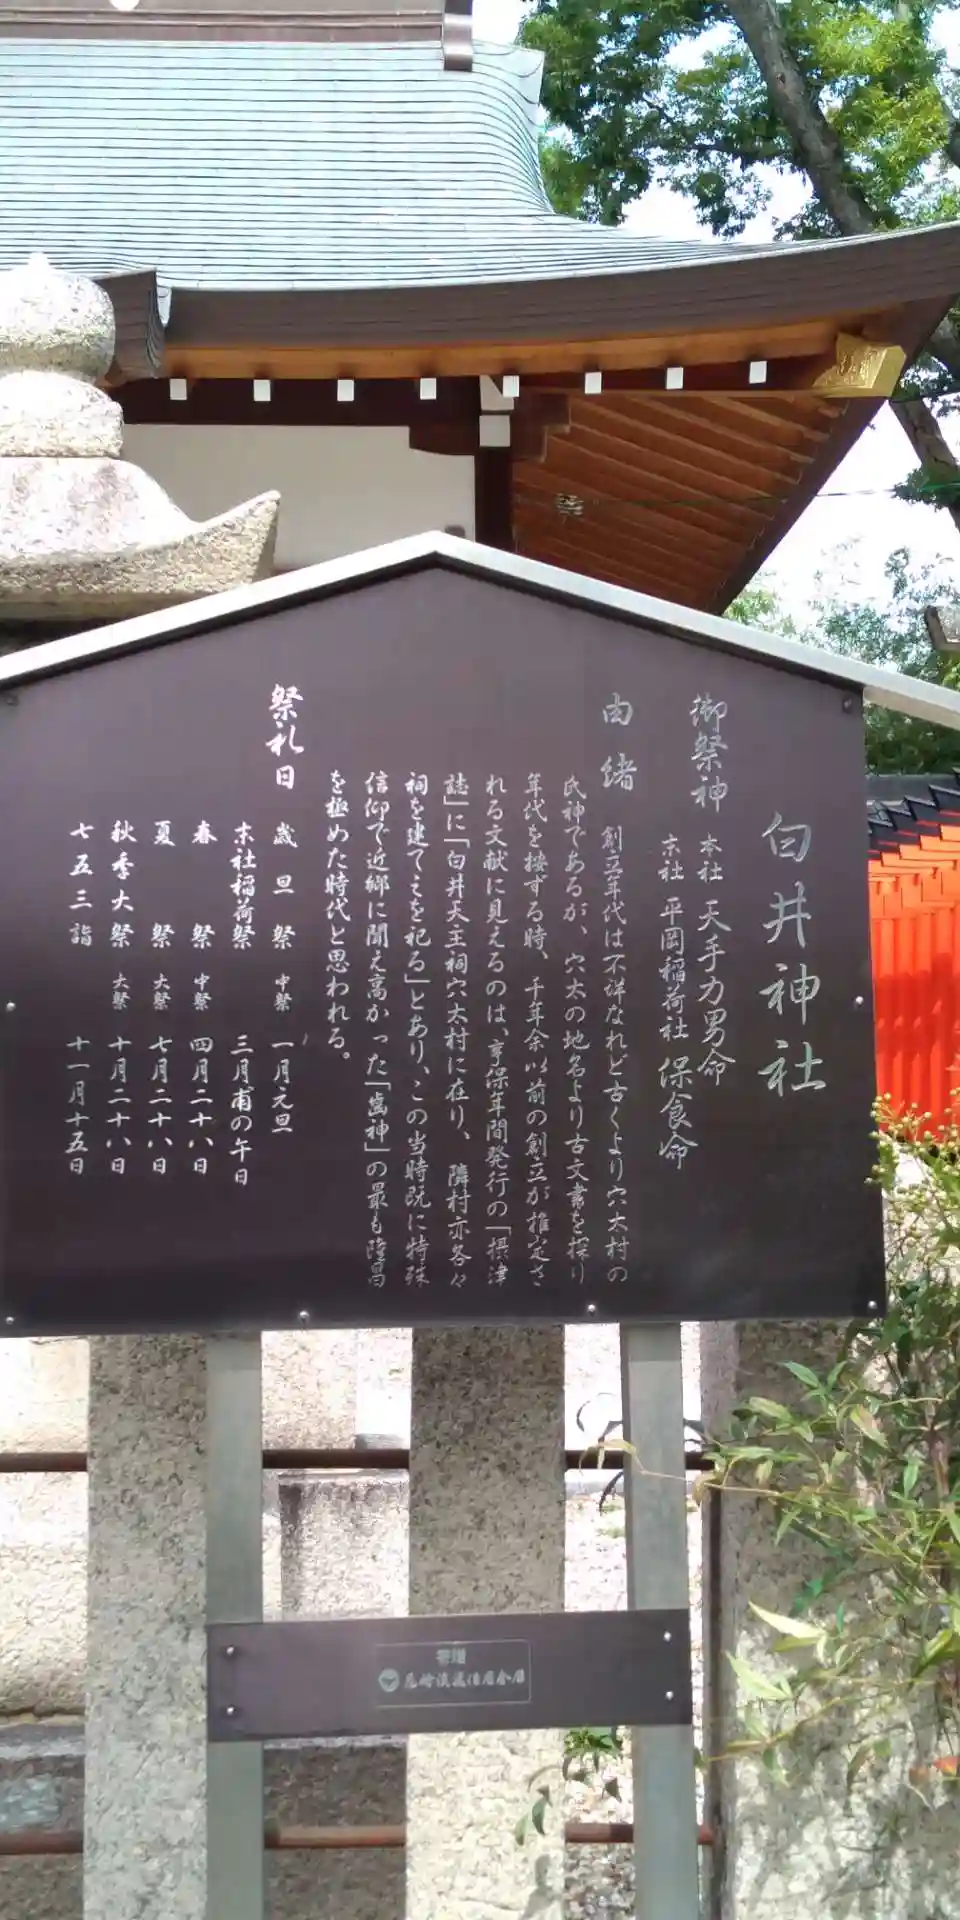 白井神社
御祭神 本社 天手力男命
末社 平岡稲荷社 保食命
由緒 創立年代は不祥なれど古くより穴太村の
氏神であるが、穴太の地名より古文書を採り
年代を按ずる時、千年余以前の創立が推定さ
れる文献に見えるのは、享保年間発行の「摂津
誌」に「白井天主祠穴太村に在り、隣村亦各々
祠を建てこを祀る」とあり、この当時既に特殊
信仰で近郷に聞え高かった「歯神」の最も隆昌
を極めた時代と思われる。
祭礼日
歳旦祭 中祭 一月元旦
末社稲荷祭 三月甫の午日
春祭 中祭 四月二十八日
夏祭 大祭 七月二十八日
秋季大祭 大祭 十月二十八日
七五三詣 十一月十五日
寄贈
尼崎浪速信用金庫